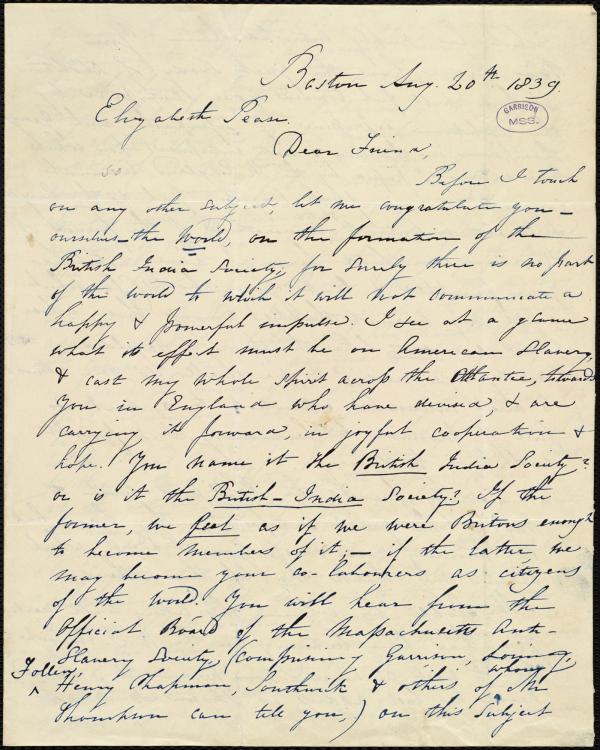 Boston Aug. 20th 1839.
GARRISON
MSS.
Elizabeth Pease.
Dear Friend,
Before I touch
on any other subject, let me congratulate you –
ourselves – the World, on the formation of the
British India Society, for surely there is no part
of the world to which it will not communicate a
happy & powerful impulse. I see at a glance
what its effect must be on American Slavery,
& cast my whole spirit across the Atlantic, towards
you in England who have devised, & are
carrying it forward, in joyful cooperation &
hope. You name it the British India Society?
or is it the British-India Society? If the
former, we feel as if we were Britons enough
to become members of it; – if the latter we
may become your co-labourers as citizens
of the world. You will hear from the
Official Board of the Massachusetts Anti-
Slavery Society, (comprising Garrison, Loring,
Follen, Henry Chapman, Southwick & others of whom Mr
Thompson can tell you,) on this subject